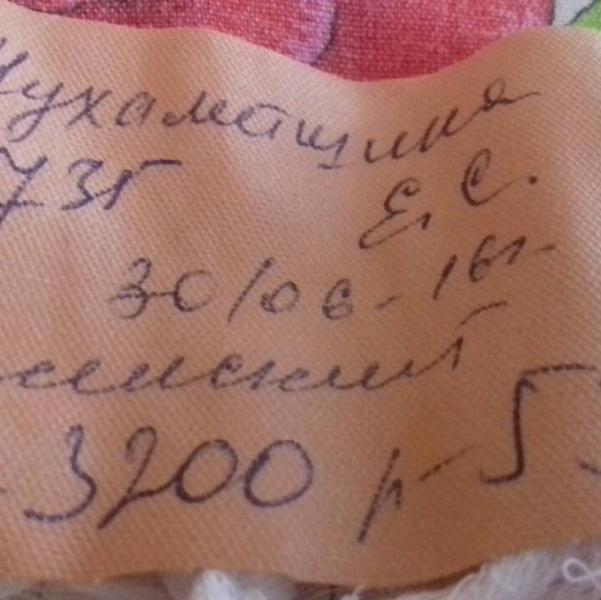 Мухаметшина
73г Е. С.
30/06-16г-
женский
3200 р- 5